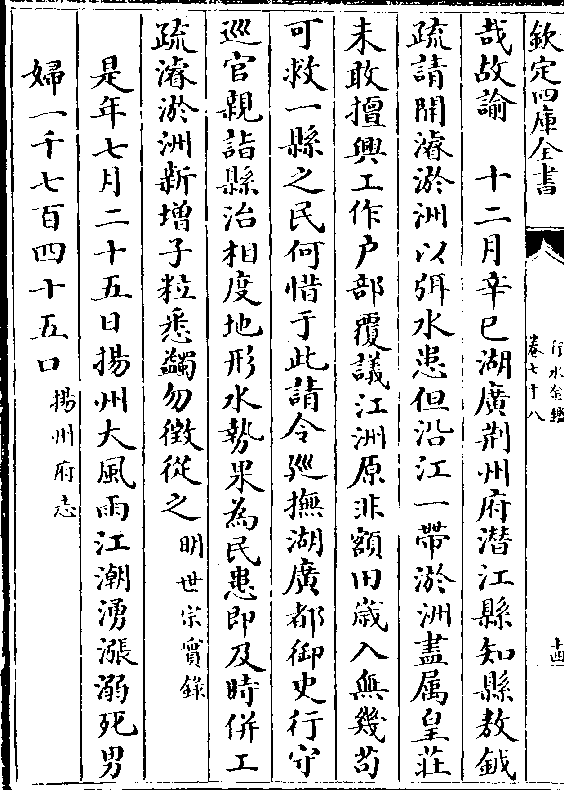 欽定四庫全書
行水金鑑
卷七十八
十四
哉故諭　十二月辛巳湖廣荆州府潛江縣知縣敖鉞
疏請開濬淤洲以弭水患但沿江一帶淤洲盡屬皇莊
未敢擅興工作户部覆議江洲原非額田歲入無幾苟
可救一縣之民何惜于此請令廵撫湖廣都御史行守
廵官親詣縣治相度地形水勢果為民患即及時併工
疏濬淤洲新增子粒悉蠲勿徵從之明世宗實錄
是年七月二十五日揚州大風雨江潮湧漲溺死男
婦一千七百四十五口揚州府志